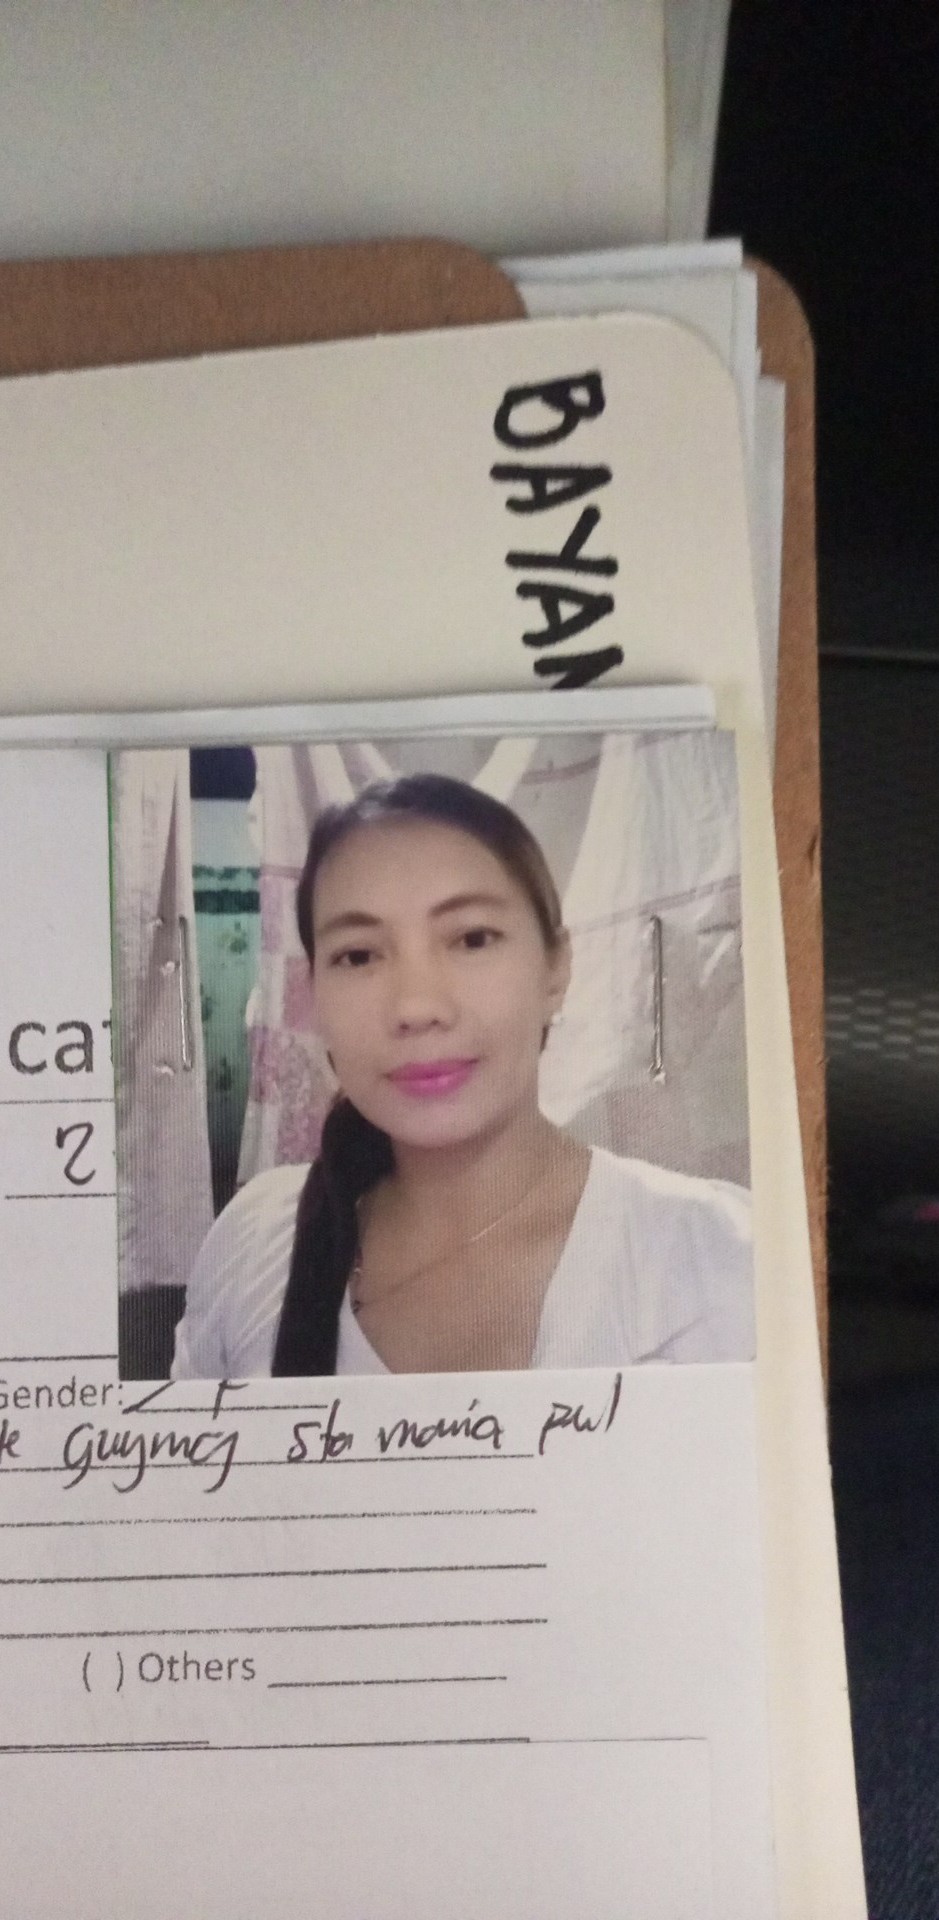 BAYAN
ca
2
Gender: F
Guyong Sta maria
( ) Others